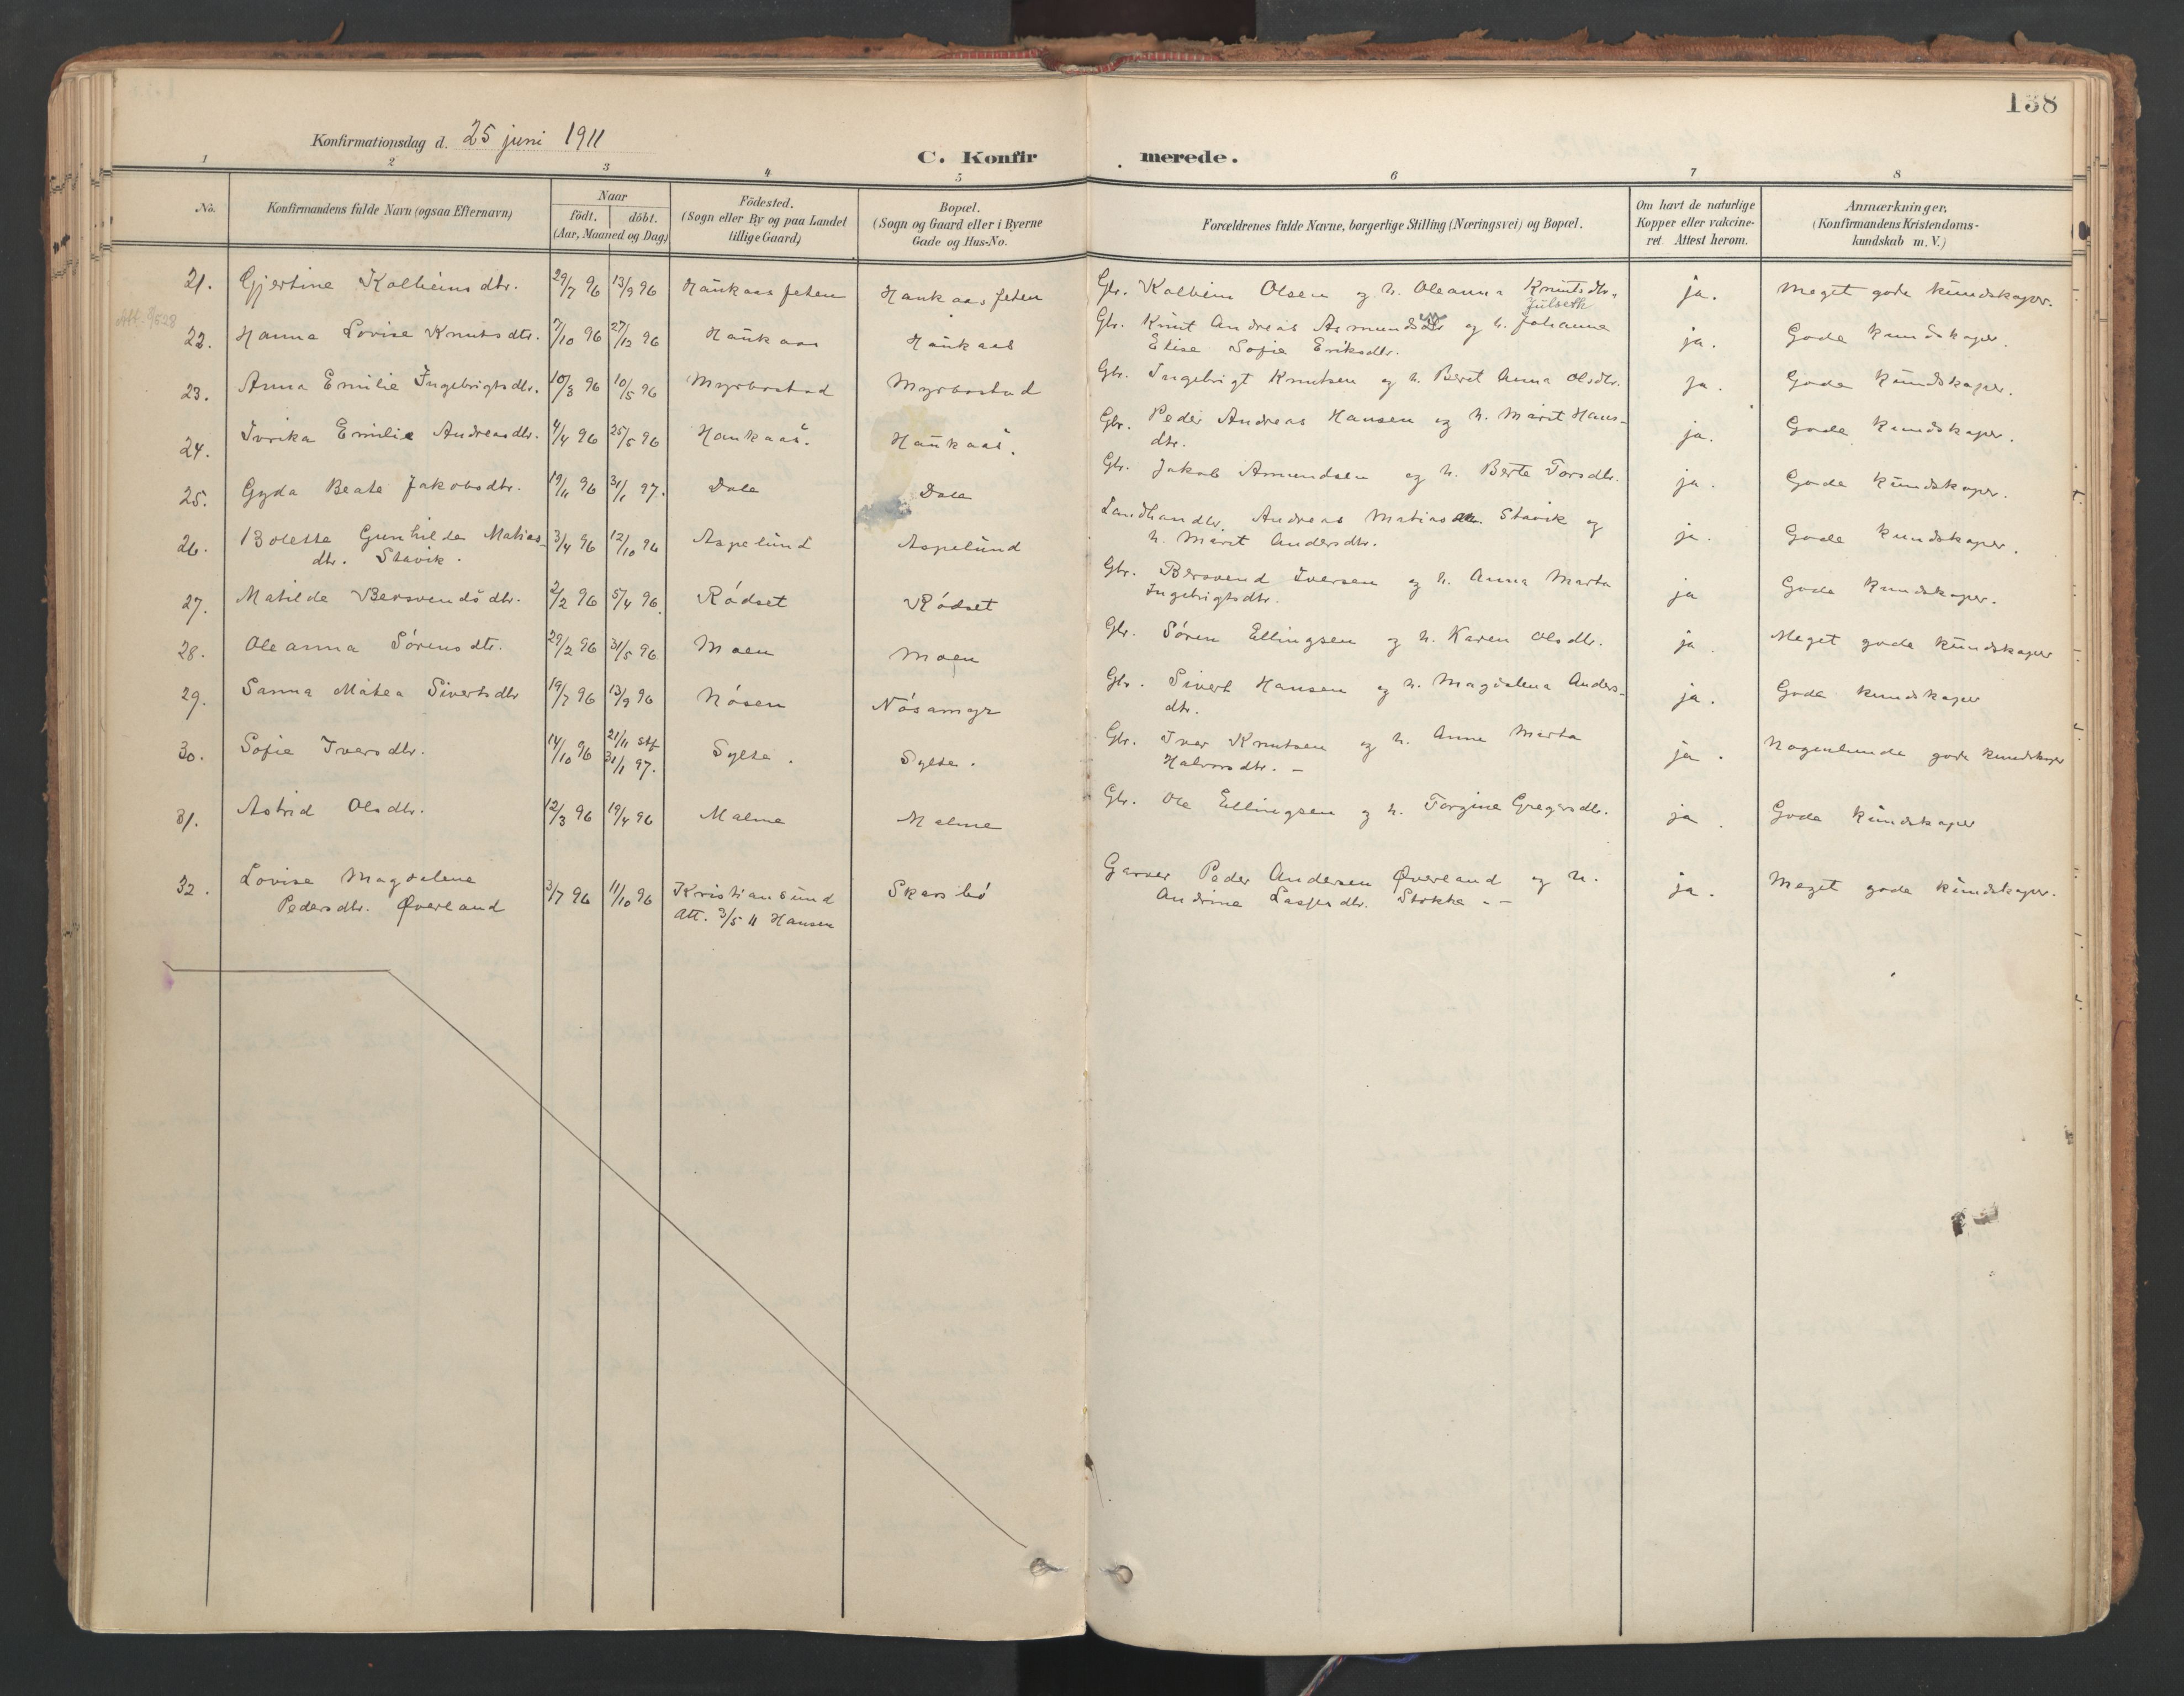 138
Konfirmationsdag d. 25 juni 1911
C. Konfirmerede.
1 2 3 4 5 6 7 8
No. Konfirmandens fulde Navn (ogsaa Efternavn) Naar födt. döbt. (Aar, Maaned og Dag) Födested. (Sogn eller By og paa Landet tillige Gaard) Bopæl. (Sogn og Gaard eller i Byerne Gade og Hus-No. Forældrenes fulde Navne, borgerlige Stilling (Næringsvei) og Bopæl. Om havt de naturlige Kopper eller vakcineret. Attest herom. Anmærkninger. (Konfirmandens Kristendomskundskab m. V.)
21. Gjertine Kolbeinsdtr. 29/7 96 13/9 96 Haukaas feten Haukaas feten Gbr. Kolbein Olsen og h. Oleanna Knutsdtr. ja. Meget gode kundskaper.
Julseth
Att. 8/5 28
22. Hanna Lovise Knutsdtr. 7/10 96 27/12 96 Haukaas Haukaas Gbr. Knut Andreas Asmunds og h. Johanna ja. Gode kundskaper.
Elise Sofie Eriksdtr.
23. Anna Emilie Ingebrigtsdtr. 10/3 96 10/5 96 Myrbostad Myrbostad Gbr. Ingebrigt Knutsen og h. Beret Anna Olsdtr. ja. Gode kundskaper.
24. Ivrika Emilie Andreasdtr. 4/4 96 25/5 96 Haukaas. Haukaas. Gbr. Peder Andreas Hansen og h. Marit Hans- ja. Gode kundskaper.
dtr.
25. Gyda Beate Jakobsdtr. 19/11 96 31/1 97. Dale Dale Gbr. Jakob Amundsen og h. Berte Torsdtr. ja. Gode kundskaper.
26. Bolette Gunhilda Matias- 3/4 96 12/10 96 Aspelund Aspelund Landhandler. Andreas Matiassen Stavik og ja. Gode kundskaper.
dtr. Stavik. h. Marit Andersdtr.
27. Matilde Bersvendsdtr. 2/2 96 5/4 96. Rødset Rødset Gbr. Bersvend Iversen og h. Anna Marta ja Gode kundskaper.
Ingebrigtsdtr.
28. Oleanna Sörensdtr. 29/2 96 31/5 96 Moen Moen Gbr. Sören Ellingsen og h. Karen Olsdtr. ja. Meget gode kundskaper
29. Sanna Matea Sivertsdtr 19/7 96 13/9 96 Nösen Nösamyr Gbr. Sivert Hansen og h. Magdalena Anders- ja. Gode kundskaper
dtr.
30. Sofie Iversdtr. 14/10 96 21/11 stf Sylte. Sylte. Gbr. Iver Knutsen og h. Anne Marta ja. Nogenlunde gode kundskaper
31/1 97. Halvorsdtr. –
31. Astrid Olsdtr. 12/3 96 19/4 96 Malme Malme Gbr. Ole Ellingsen og h. Torgine Gregersdtr. ja. Gode kundskaper
32. Lovise Magdalene 3/7 96 11/10 96 Kristiansund Skarsbø Garver Peder Andersen Øverland og h. ja. Meget gode kundskaper.
Pedersdtr. Øverland Att. 3/5 11 Hansen Andrine Lassesdtr. Stokke. –